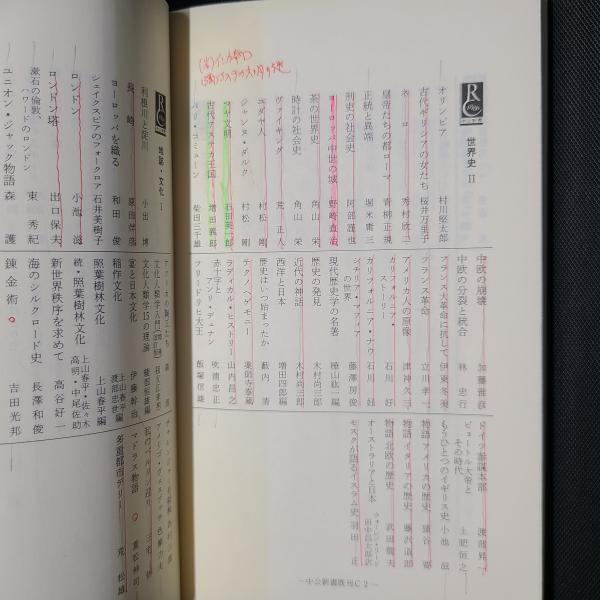 世界史 II
オリンピア 村川堅太郎
古代ギリシアの女たち 桜井万里子
ネロ 秀村欣二
皇帝たちの都ローマ 青柳正規
正統と異端 堀米庸三
刑吏の社会史 阿部謹也
ヨーロッパ中世の城 野崎直治
茶の世界史 角山栄
時計の社会史 角山栄
ヴァイキング 荒正人
ユダヤ人 村松剛
ジャンヌ・ダルク 村松剛
マヤ文明 石田英一郎
古代アステカ王国 増田義郎
パリ・コミューン 柴田三千雄
中欧の崩壊 加藤雅彦
中欧の分裂と統合 林忠行
フランス大革命に抗して 伊東冬美
フランス革命 立川孝一
アメリカ人の原像 津神久三
カリフォルニア・ストーリー 石川好
カリフォルニア・ナウ 石川好
シチリア・マフィアの世界 藤澤房俊
現代歴史学の名著 樺山紘一編
歴史の発見 木村尚三郎
近代の神話 木村尚三郎
西洋と日本 増田四郎編
歴史はいつ始まったか 薮内清
テクノヘゲモニー 薬師寺泰蔵
ラディカル・ヒストリー 山内昌之
赤十字とアンリ・デュナン 吹浦忠正
フリードリヒ大王 飯塚信雄
ドイツ参謀本部 渡部昇一
ピョートル大帝とその時代 土肥恒之
もうひとつのイギリス史 小池滋
物語アメリカの歴史 猿谷要
物語イタリアの歴史 藤沢道郎
物語北欧の歴史 武田龍夫
オーストラリアと日本
田中昌太郎訳
モスクが語るイスラム史 羽田正
―中公新書既刊C2―
地誌・文化 I
利根川と淀川 小出博
長崎 原田伴彦
ヨーロッパを織る 和田俊
シェイクスピアのフォークロア 石井美樹子
ロンドン 小池滋
ロンドン塔 出口保夫
漱石の倫敦、ハワードのロンドン 東秀紀
ユニオン・ジャック物語 森護
文化人類学入門 祖父江孝男
文化人類学15の理論 綾部恒雄編
道と日本文化 伊藤幹治
稲作文化 上山春平編 渡部忠世
照葉樹林文化 上山春平編
続・照葉樹林文化 上山春平・佐々木高明・中尾佐助
新世界秩序を求めて 高谷好一
海のシルクロード史 長澤和俊
錬金術 吉田光邦
私のベルリン巡り 三宅悟
マドラス物語 重松伸司
多重都市デリー 荒松雄